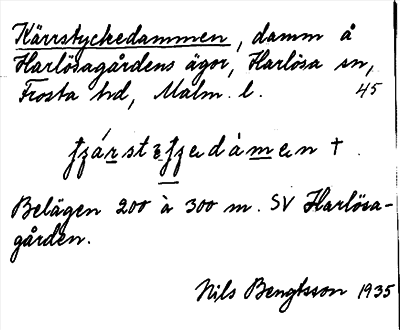 Kärrstyckedammen, damm å
Harlösagårdens ägor, Harlösa sn,
Frosta hd, Malm. l. 45
Belägen 200 à 300 m. SV Harlösa-
gården.
Nils Bengtsson 1935